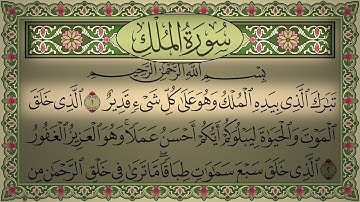 سُورَةُ المُلْكِ
بِسْمِ اللَّهِ الرَّحْمَٰنِ الرَّحِيمِ
تَبَٰرَكَ ٱلَّذِى بِيَدِهِ ٱلْمُلْكُ وَهُوَ عَلَىٰ كُلِّ شَىْءٍ قَدِيرٌ ١ ٱلَّذِى خَلَقَ
ٱلْمَوْتَ وَٱلْحَيَوٰةَ لِيَبْلُوَكُمْ أَيُّكُمْ أَحْسَنُ عَمَلًا ۚ وَهُوَ ٱلْعَزِيزُ ٱلْغَفُورُ
٢ ٱلَّذِى خَلَقَ سَبْعَ سَمَٰوَٰتٍ طِبَاقًا ۖ مَّا تَرَىٰ فِى خَلْقِ ٱلرَّحْمَٰنِ مِن